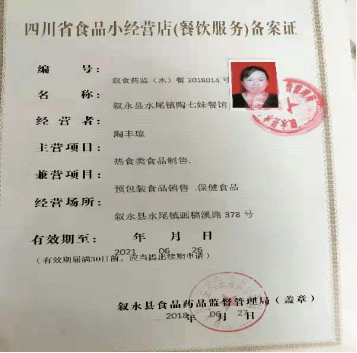 四川省食品小经营店(餐饮服务)备案证
编 号: 叙食药监（水）餐 2018014 号
名 称: 叙永县水尾镇陶七妹餐馆
经 营 者: 陶丰琼
主营项目: 热食类食品制售.
兼营项目: 预包装食品销售 .保健食品
经营场所: 叙永县水尾镇画稿溪路 378 号
有效期至: 2021 年 06 月 26 日
(有效期届满30日前，应当提出续期申请)
叙永县食品药品监督管理局（盖章）
2018 年 06 月 27 日